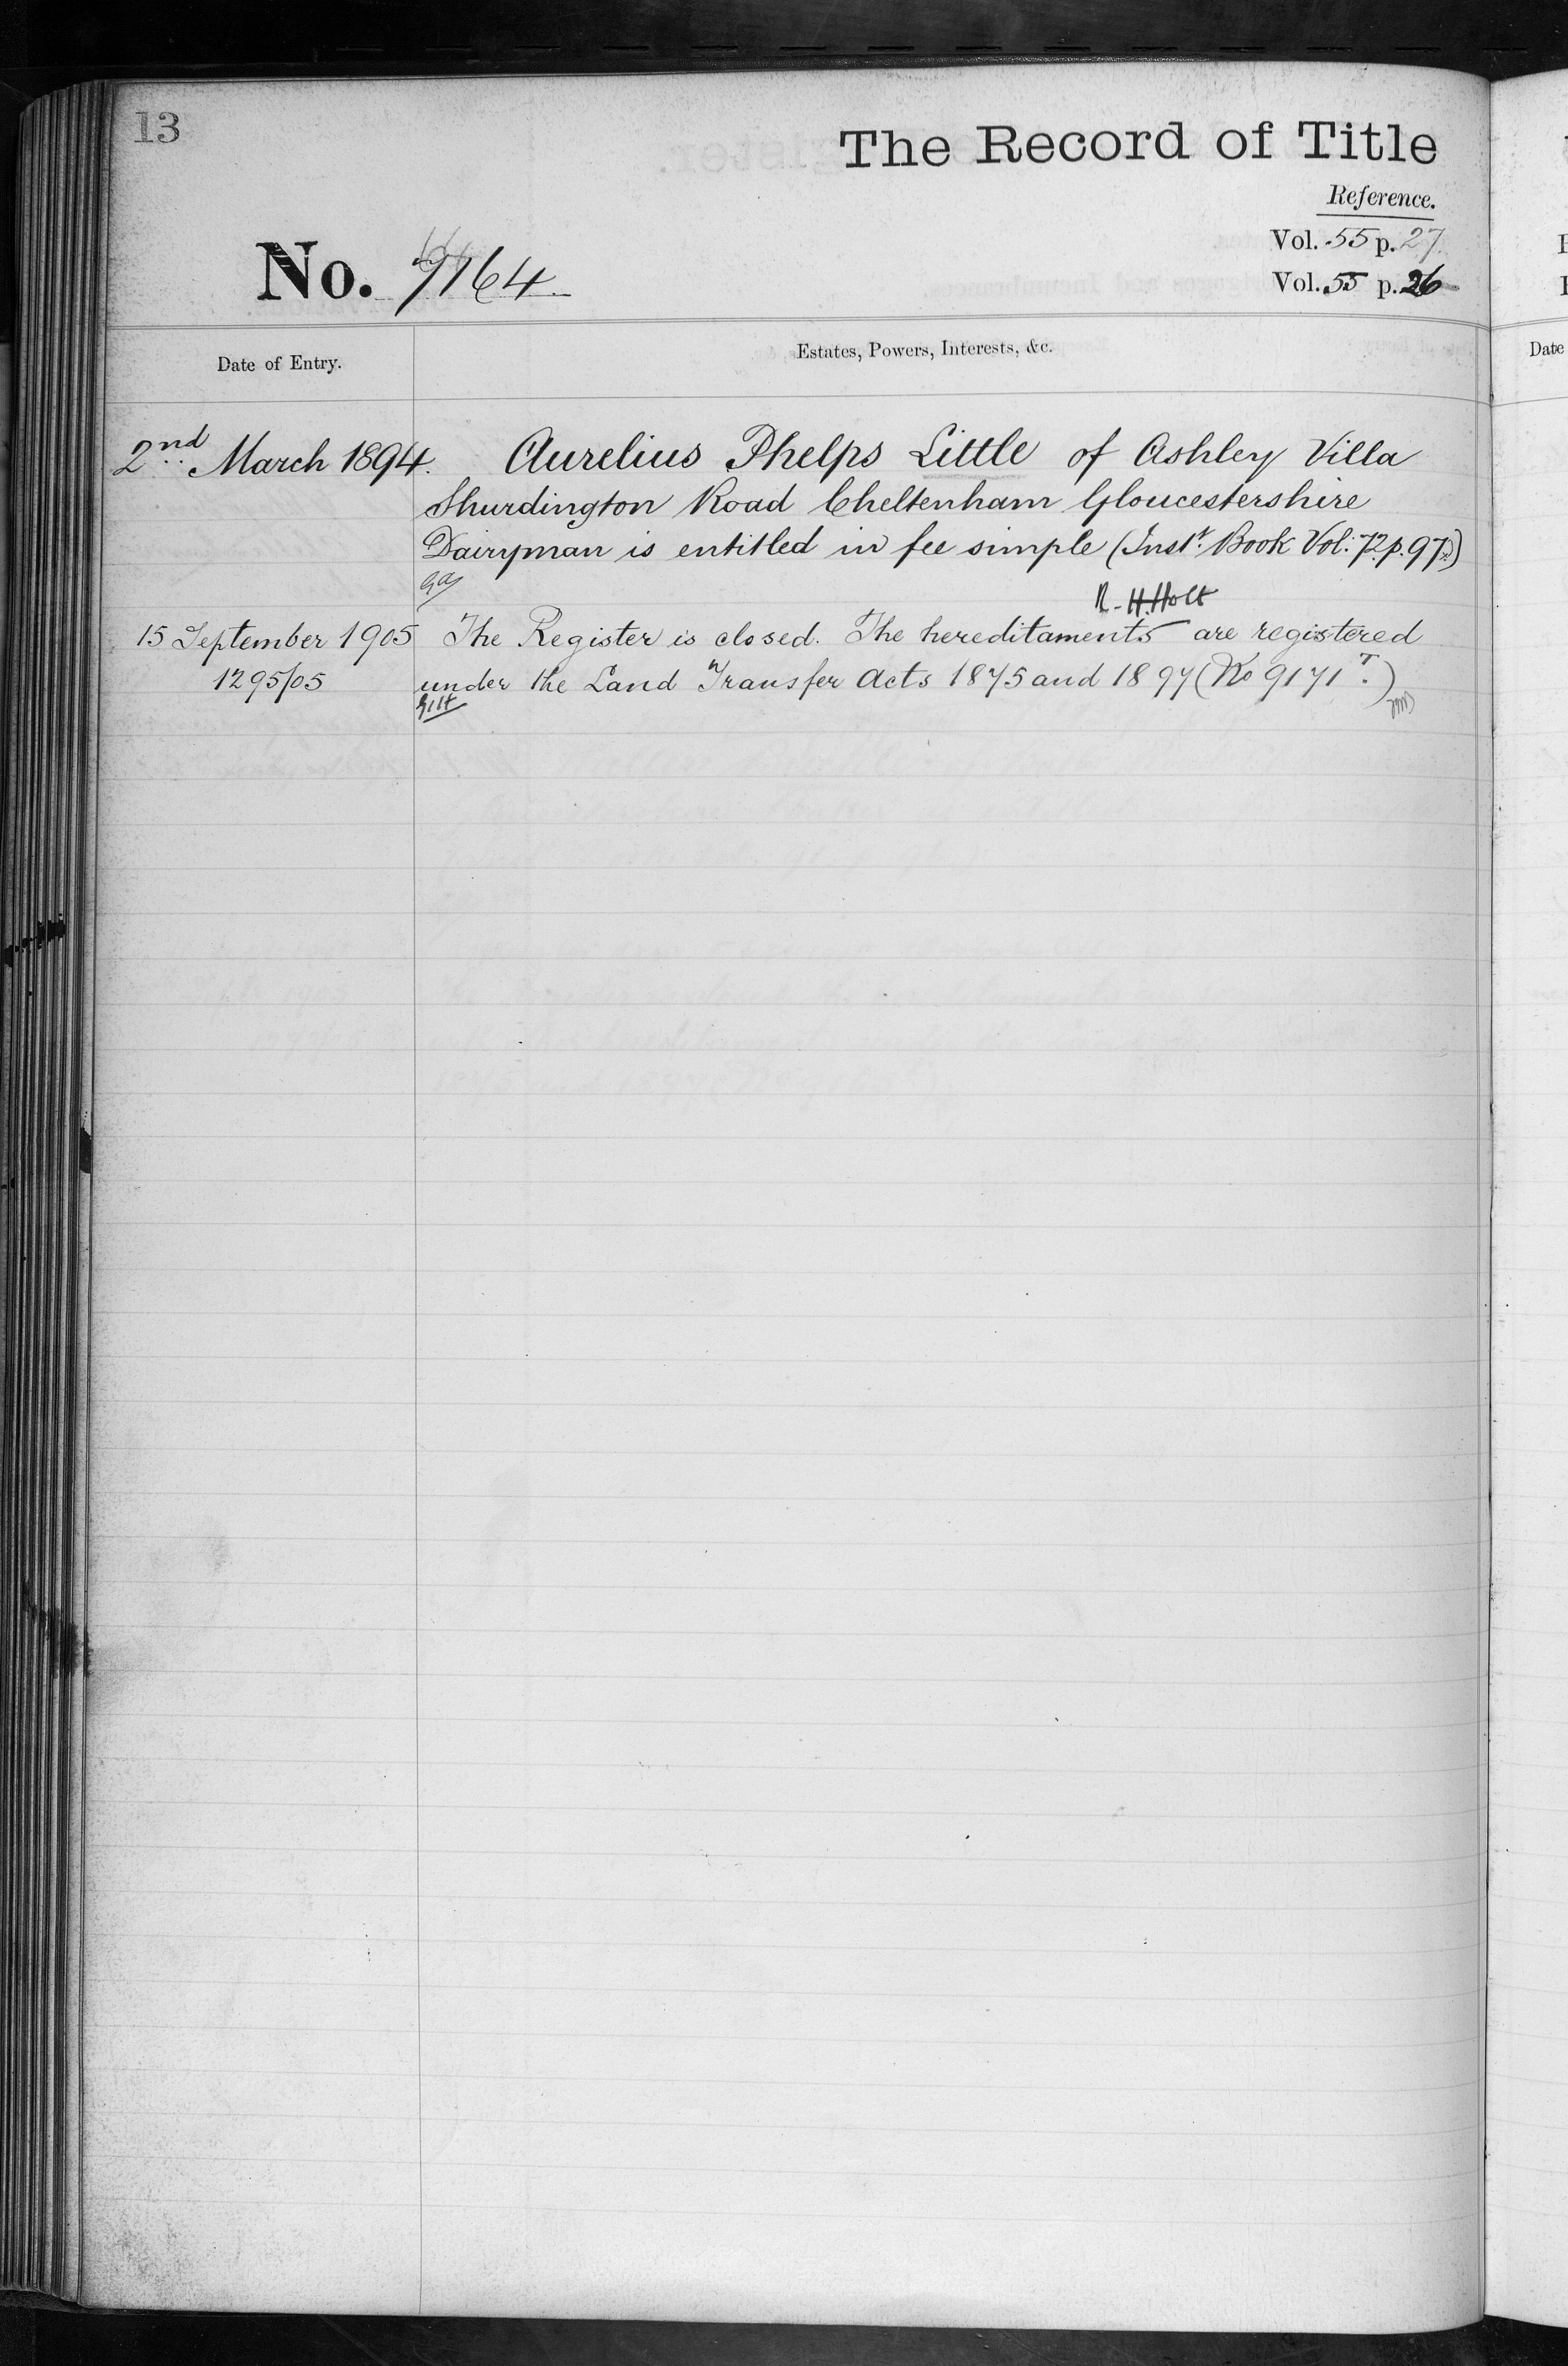 13
The Record of Title
Reference.
Vol. 55 p. 27
Vol. 55 p. 26
No. 9164
Date of Entry.
Estates, Powers, Interests, &c.
2nd March 1894. Aurelius Phelps Little of Ashley Villa
Shurdington Road Cheltenham Gloucestershire
Dairyman is entitled in fee simple (Inst. Book Vol: 72 p. 97.)
R. H. Holt
15 September 1905 The Register is closed. The hereditaments are registered
1295/05 under the Land Transfer Acts 1875 and 1897 (No 9171 T.)
Date